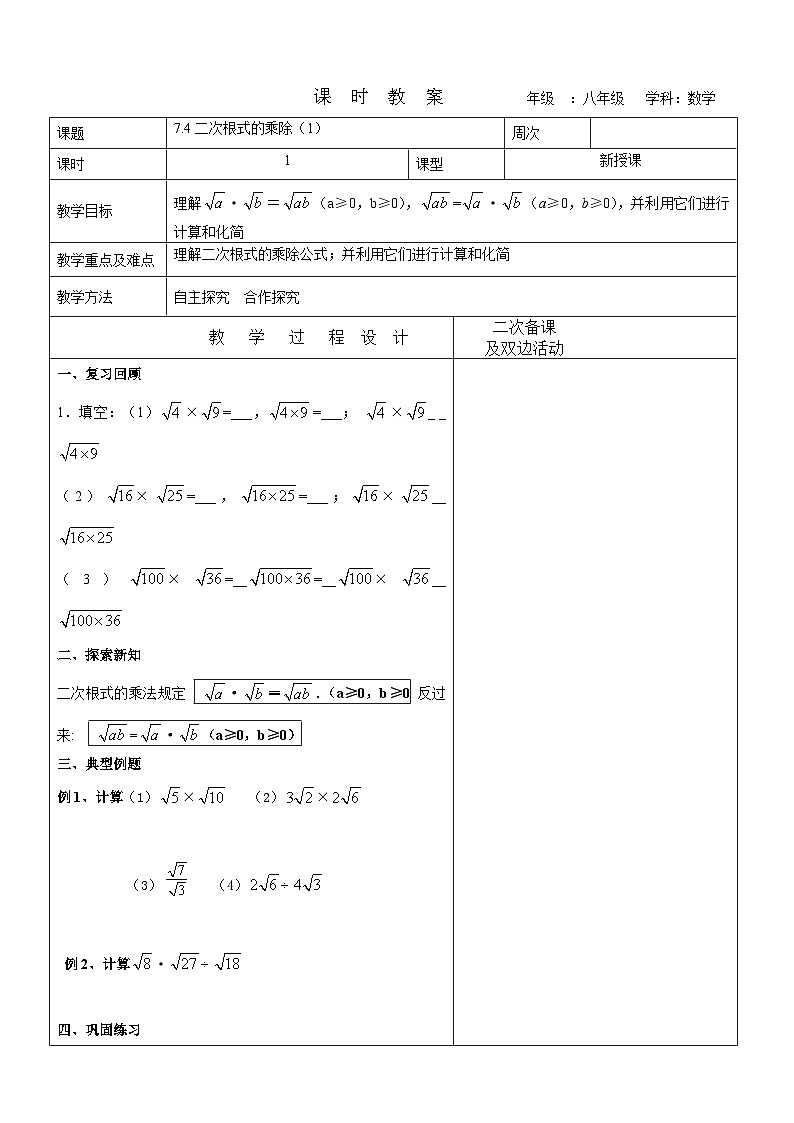 课 时 教 案 年级 :八年级 学科:数学
课题 7.4二次根式的乘除(1) 周次
课时 1 课型 新授课
教学目标 理解√a·√b=√ab(a≥0,b≥0),√ab=√a·√b(a≥0,b≥0),并利用它们进行
计算和化简
教学重点及难点 理解二次根式的乘除公式;并利用它们进行计算和化简
教学方法 自主探究 合作探究
教 学 过 程 设 计 二次备课
及双边活动
一、复习回顾
1.填空:(1)√4×√9=___,√4×9=___; √4×√9_ _
√4×9
(2)√16×√25=___,√16×25=___;√16×√25__
√16×25
(3)√100×√36=__√100×36=__√100×√36__
√100×36
二、探索新知
二次根式的乘法规定 √a·√b=√ab.(a≥0,b≥0 反过
来: √ab=√a·√b(a≥0,b≥0)
三、典型例题
例1、计算(1)√5×√10 (2)3√2×2√6
(3)√7/√3 (4)2√6÷4√3
例2、计算√8·√27÷√18
四、巩固练习